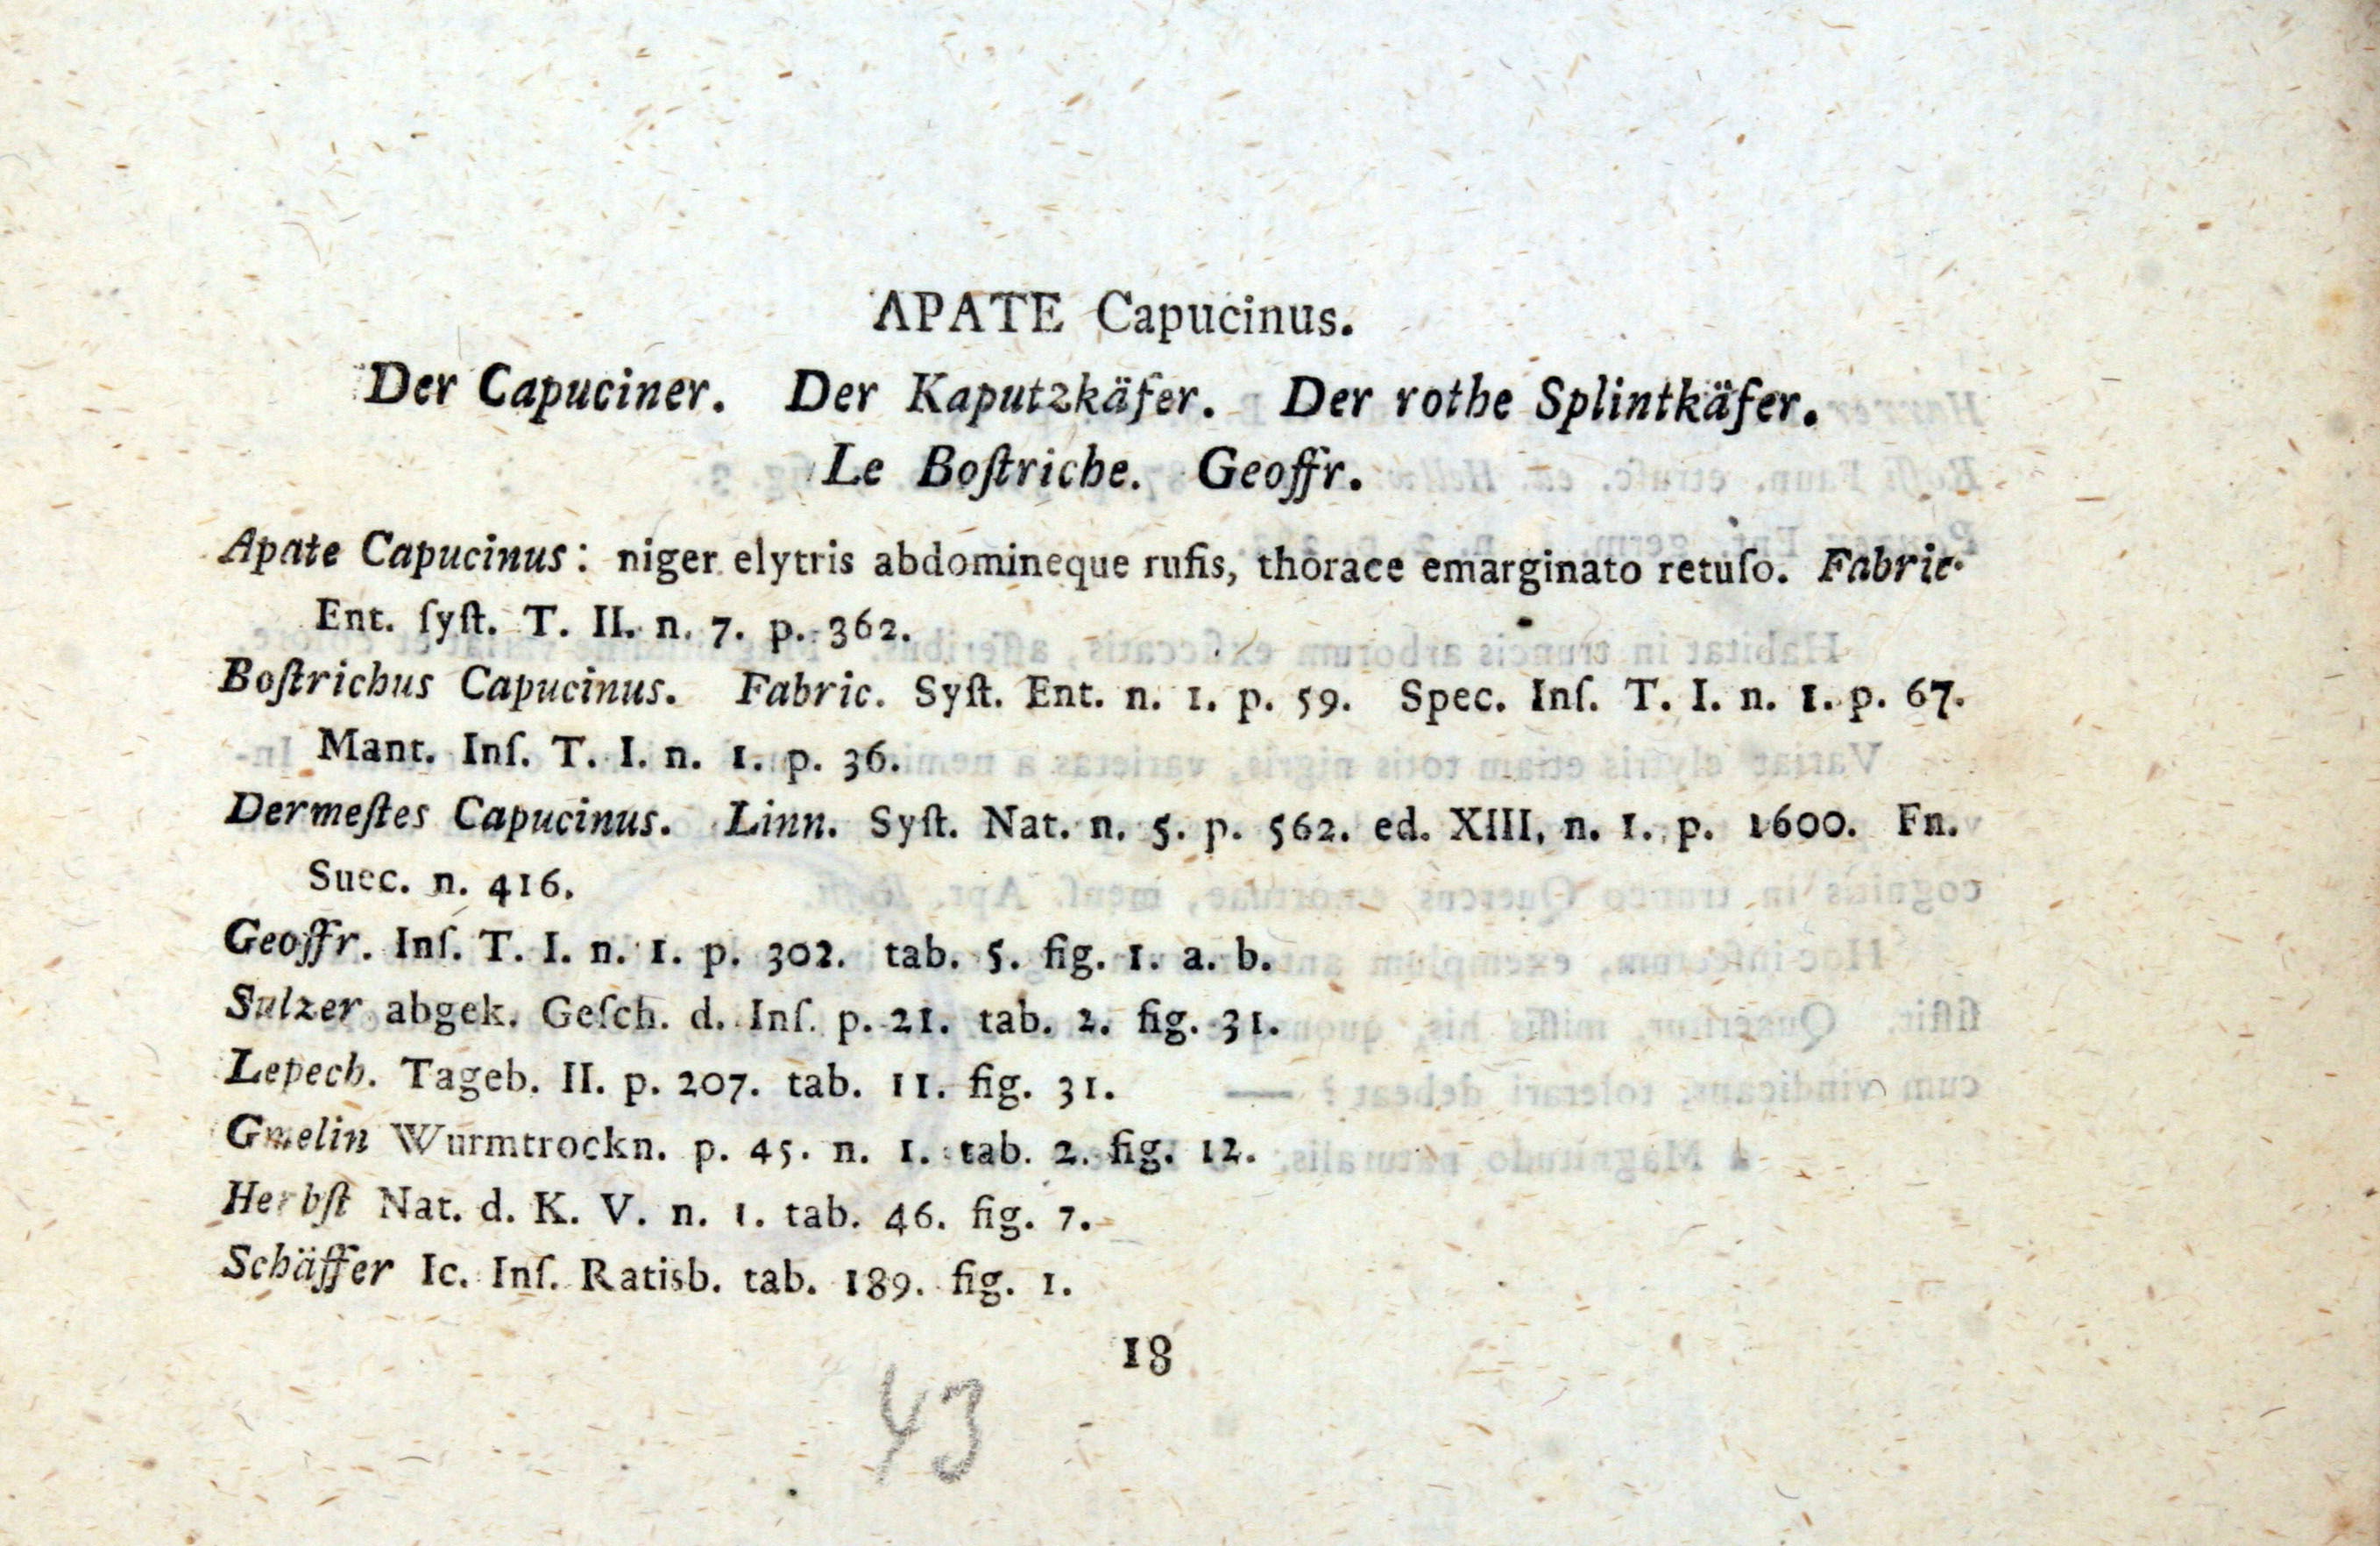 APATE Capucinus.
Der Capuciner. Der Kaputzkäfer. Der rothe Splintkäfer.
Le Boſtriche. Geoffr.
Apate Capucinus: niger elytris abdomineque rufis, thorace emarginato retuſo. Fabric.
Ent. ſyſt. T. II. n. 7. p. 362.
Boſtrichus Capucinus. Fabric. Syſt. Ent. n. 1. p. 59. Spec. Inſ. T. I. n. 1. p. 67.
Mant. Inſ. T. I. n. 1. p. 36.
Dermeſtes Capucinus. Linn. Syſt. Nat. n. 5. p. 562. ed. XIII, n. 1. p. 1600. Fn.
Suec. n. 416.
Geoffr. Inſ. T. I. n. 1. p. 302. tab. 5. fig. 1. a. b.
Sulzer abgek. Geſch. d. Inſ. p. 21. tab. 2. fig. 31.
Lepech. Tageb. II. p. 207. tab. 11. fig. 31.
Gmelin Wurmtrockn. p. 45. n. 1. tab. 2. fig. 12.
Herbſt Nat. d. K. V. n. 1. tab. 46. fig. 7.
Schäffer Ic. Inſ. Ratisb. tab. 189. fig. 1.
18
43